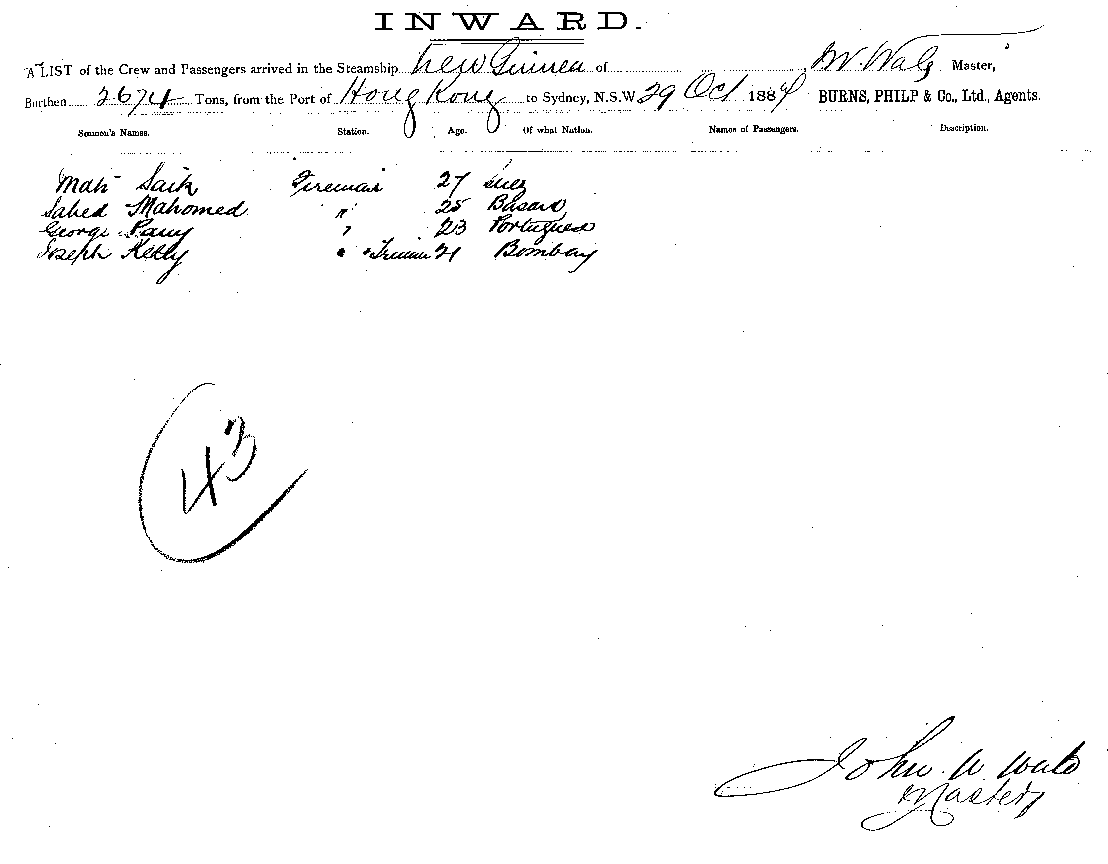 INWARD.
A LIST of the Crew and Passengers arrived in the Steamship New Guinea of W. Wale Master,
Burthen 2674 Tons, from the Port of Hong Kong to Sydney, N.S.W 29 Oct 188 BURNS, PHILP & Co., Ltd., Agents.
Seamen's Names. Station. Age. Of what Nation. Names of Passengers. Description.
Saik Fireman 27 Suez
Sahed Mahomed " 25
George 23 Portuguese
Joseph Kelly 21 Bombay
43
John W Wale
Master